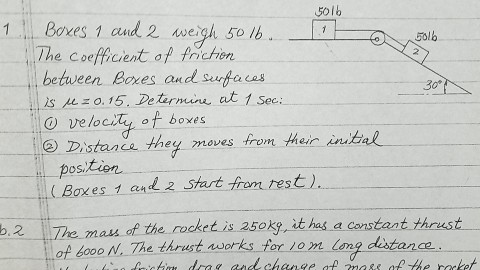 50lb
1 Boxes 1 and 2 weigh 50 lb.
1
50lb
2
The coefficient of friction
between Boxes and surfaces
30°
is μ = 0.15. Determine at 1 sec:
① velocity of boxes
② Distance they moves from their initial
position
(Boxes 1 and 2 start from rest).
b.2 The mass of the rocket is 250kg, it has a constant thrust
of 6000 N. The thrust works for 10 m long distance.
friction, drag and change of mass of the rocket